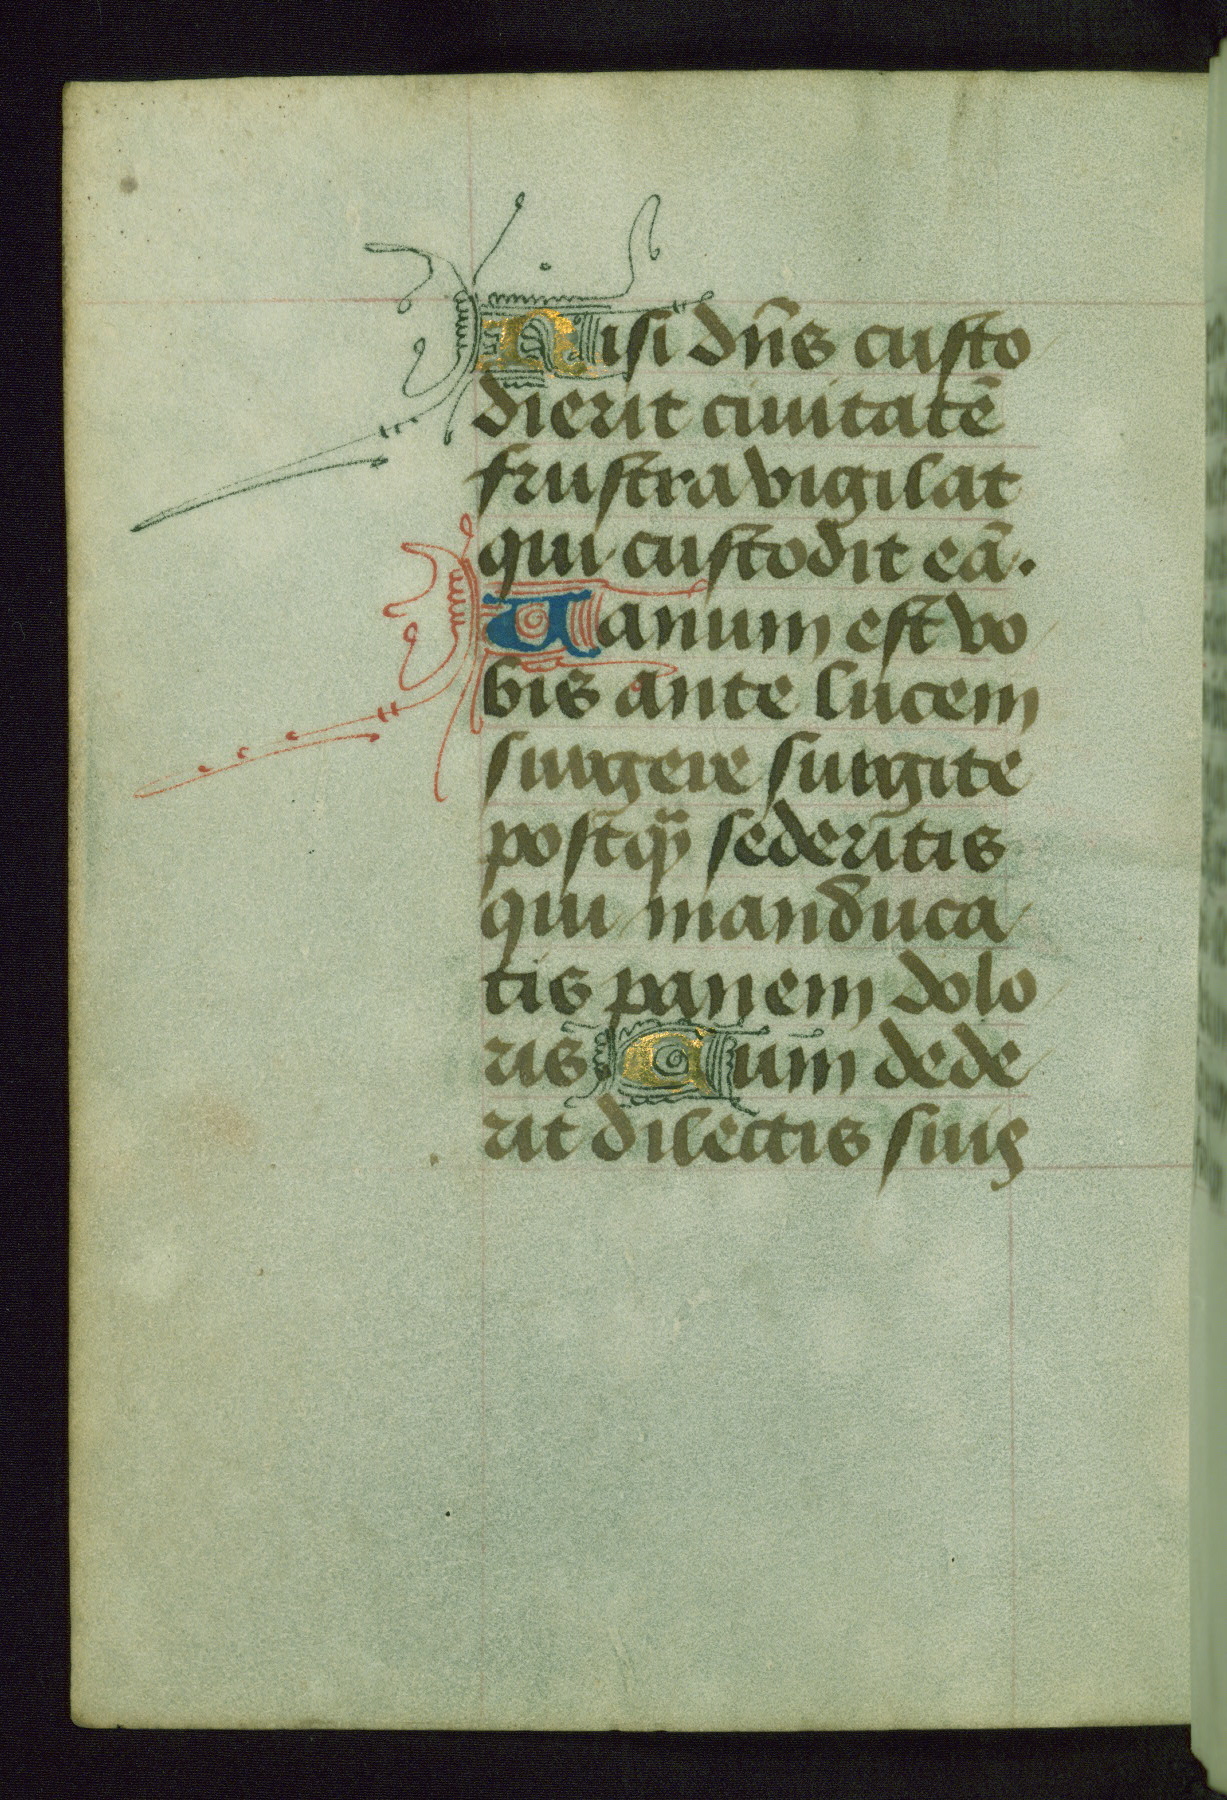 Nisi dn̄s custo
dierit ciuitatē
frustra vigilat
qui custodit eā.
Vanum est vo
bis ante lucem
surgere surgite
postqᷓ sederitis
qui manduca
tis panem dolo
ris Cum dede
rit dilectis suis